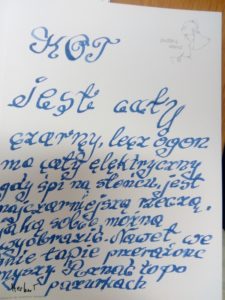 KOT
jest cały
czarny, lecz ogon
ma cały elektryczny
gdy śpi na słońcu, jest
najczarniejszą rzeczą,
jaką sobie można
wyobrazić. Nawet we
śnie łapie przerażone
myszy. Poznać to po
pazurkach
Herbert